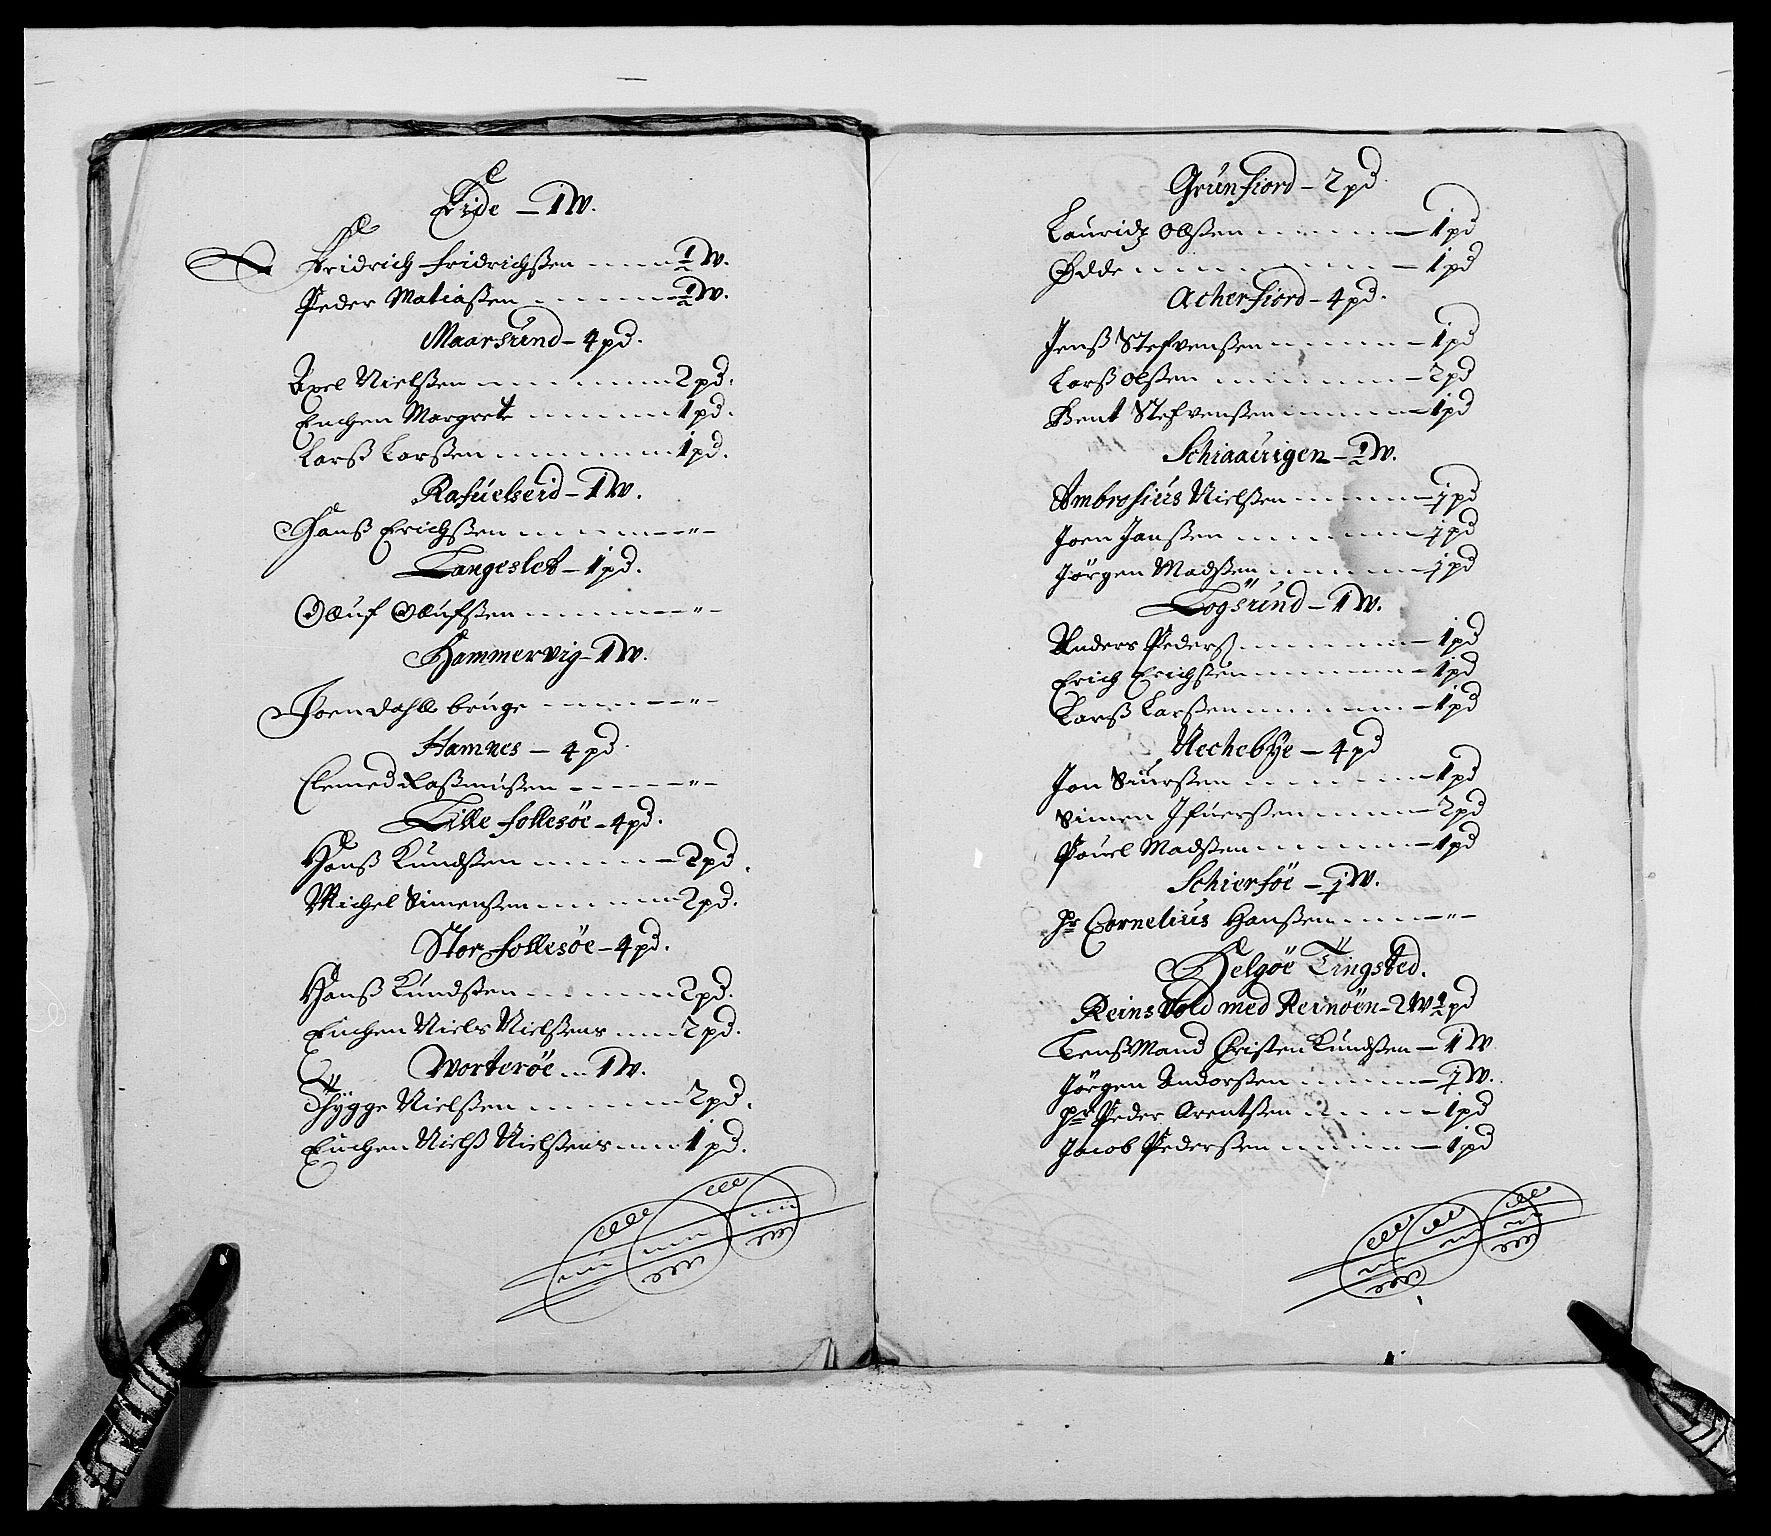 Eide – 1 W.
Fridrich Fridrichßen – ½ W.
Peder Matiaßen – ½ W.
Maarsund – 4 pd.
Axel Nielßen – 2 pd.
Enchen Margrete – 1 pd.
Larß Larßen – 1 pd.
Rafuelseid – 1 W.
Hanß Erichßen – "
Langeslet – 1 pd.
Oluf Olufßen – "
Hammervig – 1 W.
Joen dahls bruge – "
Hamnes – 4 pd.
Clemed Raßmußen – "
Lille Follesöe – 4 pd.
Hanß Knudßen – 2 pd.
Michel Simenßen – 2 pd.
Stor Follesöe – 4 pd.
Hanß Knudßen – 2 pd.
Enchen Niels Nielßens – 2 pd.
Worteröe – 1 W.
Thygge Nielßen – 2 pd.
Enchen Nielß Nielßens – 1 pd.
Grunfiord – 2 pd
Lauridz Olßen – 1 pd
Ödde – 1 pd
Acherfiord – 4 pd.
Jenß Stefvenßen – 1 pd
Larß Olßen – 2 pd
Bent Stefvenßen – 1 pd
Schiaauigen – ½ W.
Ambrosius Nielßen – 1 pd
Joen Janßen – 1 pd
Jörgen Madßen – 1 pd
Logsund – 1 W.
Anders Pederß – 1 pd
Erich Erichßen – 1 pd
Larß Larßen – 1 pd
Hechebÿe – 4 pd
Jon Siurßen – 1 pd
Simen Ifuerßen – 2 pd
Pouel Madßen – 1 pd
Schierföe – ½ W.
Hr Cornelius Hanßen – "
Helgöe Tingsted.
Reins Vold med Reinöen – 2 W ½ pd
Lenßmand Christen Knudßen – 1 W
Jörgen Andorßen – ½ W.
Hr Peder Arentßen – 1 pd
Jacob Pederßen – 1 pd